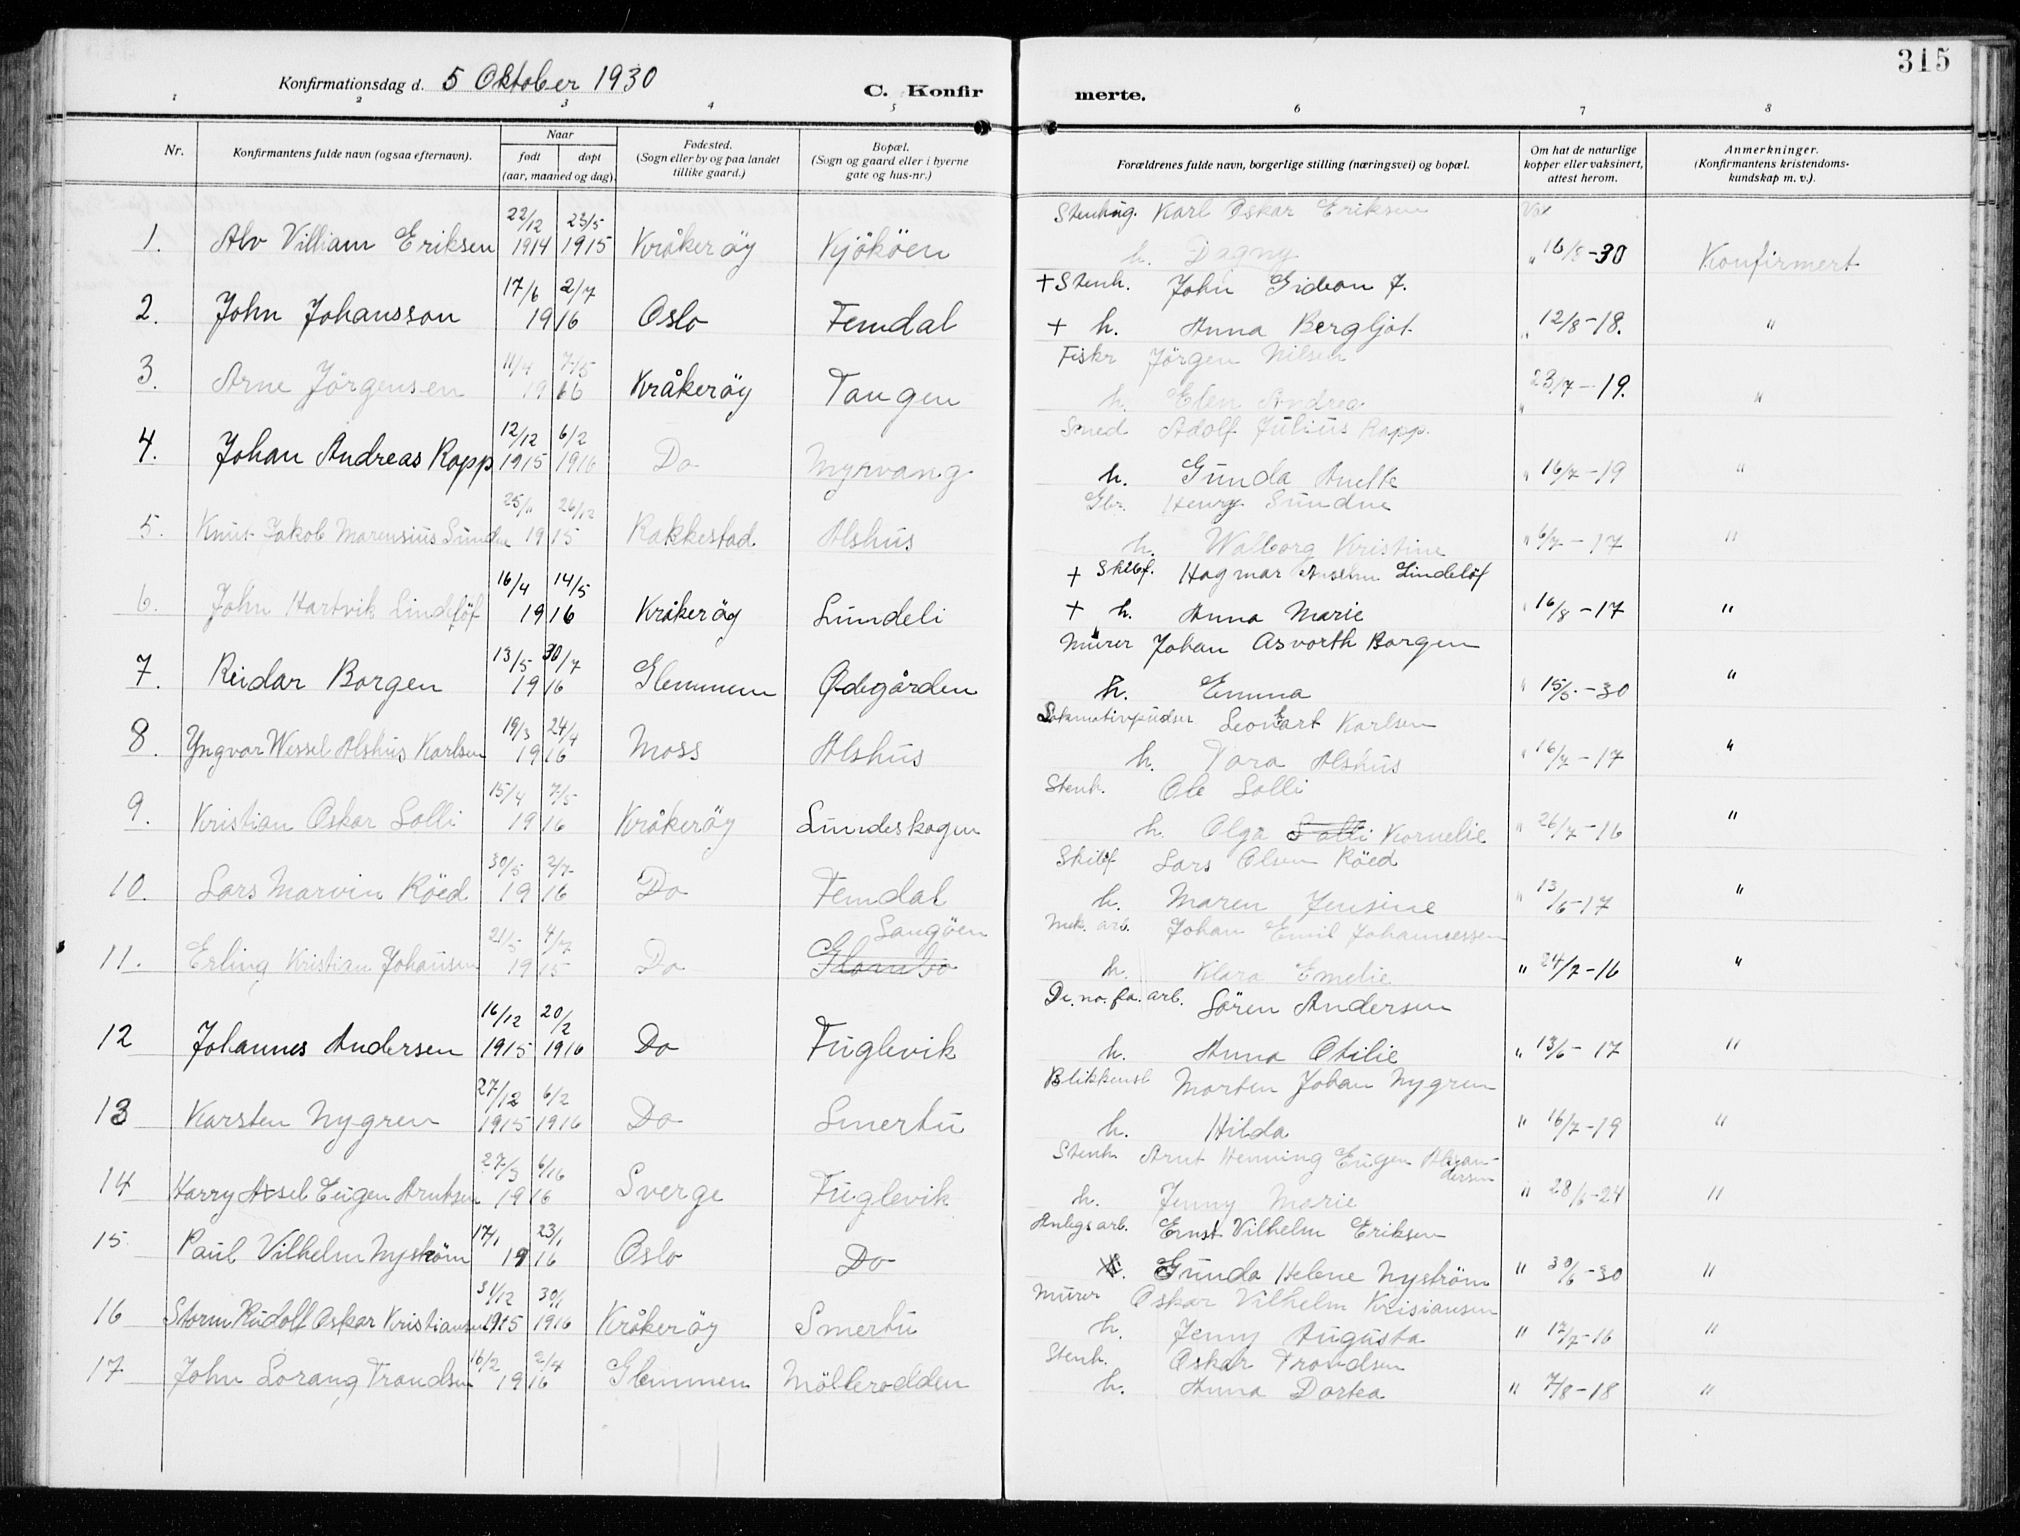 315
Konfirmationsdag d. 5 Oktober 1930
C. Konfir merte.
1 2 3 4 5 6 7 8
Nr.
Konfirmantens fulde navn (ogsaa efternavn).
Naar
født døpt
(aar, maaned og dag).
Fødested.
(Sogn eller by og paa landet
tillike gaard.)
Bopæl.
(Sogn og gaard eller i byerne
gate og hus-nr.)
Forældrenes fulde navn, borgerlige stilling (næringsvei) og bopæl.
Om hat de naturlige
kopper eller vaksinert,
attest herom.
Anmerkninger.
(Konfirmantens kristendoms-
kundskap m. v.).
22/12 23/5 Stenhug. Karl Oskar Eriksen Vax
1. Alv Villiam Eriksen 1914 1915 Kråkeröy Kjököen h. Dagny " 16/8-30 Konfirmert
17/6 2/7 + Stenh. John Gideon J.
2. John Johansson 19 16 Oslo Femdal + h. Anna Bergljot " 12/8-18. "
11/4 7/5 Fiskr Jörgen Nilsen
3. Arne Jörgensen 19 16 Kråkeröy Tangen h. Elen Andrea " 23/7-19. "
12/12 6/2 Smed Adolf Julius Rapp.
4. Johan Andreas Rapp 1915 1916 Do Nyrvang h. Gunda Anette " 16/7-19 "
26/12 Gbr. Henry Sundne
5. Knut Jakob Marensius Sundne 19 15 Rakkestad Alshus h. Walborg Kristine " 6/7-17 "
16/4 14/5 + Skibf. Hagmar Anselm Lindelöf
6. John Hartvik Lindelöf 19 16 Kråkeröy Lundeli + h. Anna Marie " 16/8-17 "
13/5 30/7 Murer Johan Asvorth Borgen
7. Reidar Borgen 19 16 Glemmen Ødegården h. Emma " 15/5.-30 "
19/3 24/4 Lokomotivpudser Leonhart Karlsen
8. Yngvar Wessel Alshus Karlsen 19 16 Moss Alshus h. Tora Alshus " 16/7-17 "
15/4 7/5 Stenh. Ole Solli
9. Kristian Oskar Solli 19 16 Kråkeröy Lundeskogen h. Olga Solli Kornelie " 26/7-16 "
30/5 2/7 Skibf Lars Olsen Röed
10. Lars Marvin Röed 19 16 Do Femdal h. Maren Jensine " 13/6-17 "
21/5 4/7 Langöen Mek. arb. Johan Emil Johannessen
11. Erling Kristian Johansen 19 15 Do Glombo h. Klara Emelie " 24/7-16 "
16/12 20/2 De.no.fa. arb. Sören Andersen
12 Johannes Andersen 1915 1916 Do Fuglevik h. Anna Otilie " 13/6-17 "
27/12 6/2 Blikkensl Morten Johan Nygren
13 Karsten Nygren 1915 1916 Do Smertu h. Hilda " 16/7-19 "
27/3 6/16 Stenh Arnt Henning Eugen Alexan-
dersen
14 Harry Aksel Eugen Arntsen 19 16 Sverge Fuglevik h. Jenny Marie " 28/6-24 "
17/1 23/1 Anlegsarb. Ernst Vilhelm Eriksen
15 Paul Vilhelm Nyström 19 16 Oslo Do Gunda Helene Nyström " 30/6-30 "
31/12 30/1 Murer Oskar Vilhelm Krisiansen
16 Storm Rudolf Oskar Kristiansen 1915 1916 Kråkeröy Smertu h. Jenny Augusta " 17/7-16 "
16/2 2/4 Stenh. Oskar Trondsen
17 John Lorang Trondsen 19 16 Glemmen Mölterodden h. Anna Dortea " 7/8-18 "